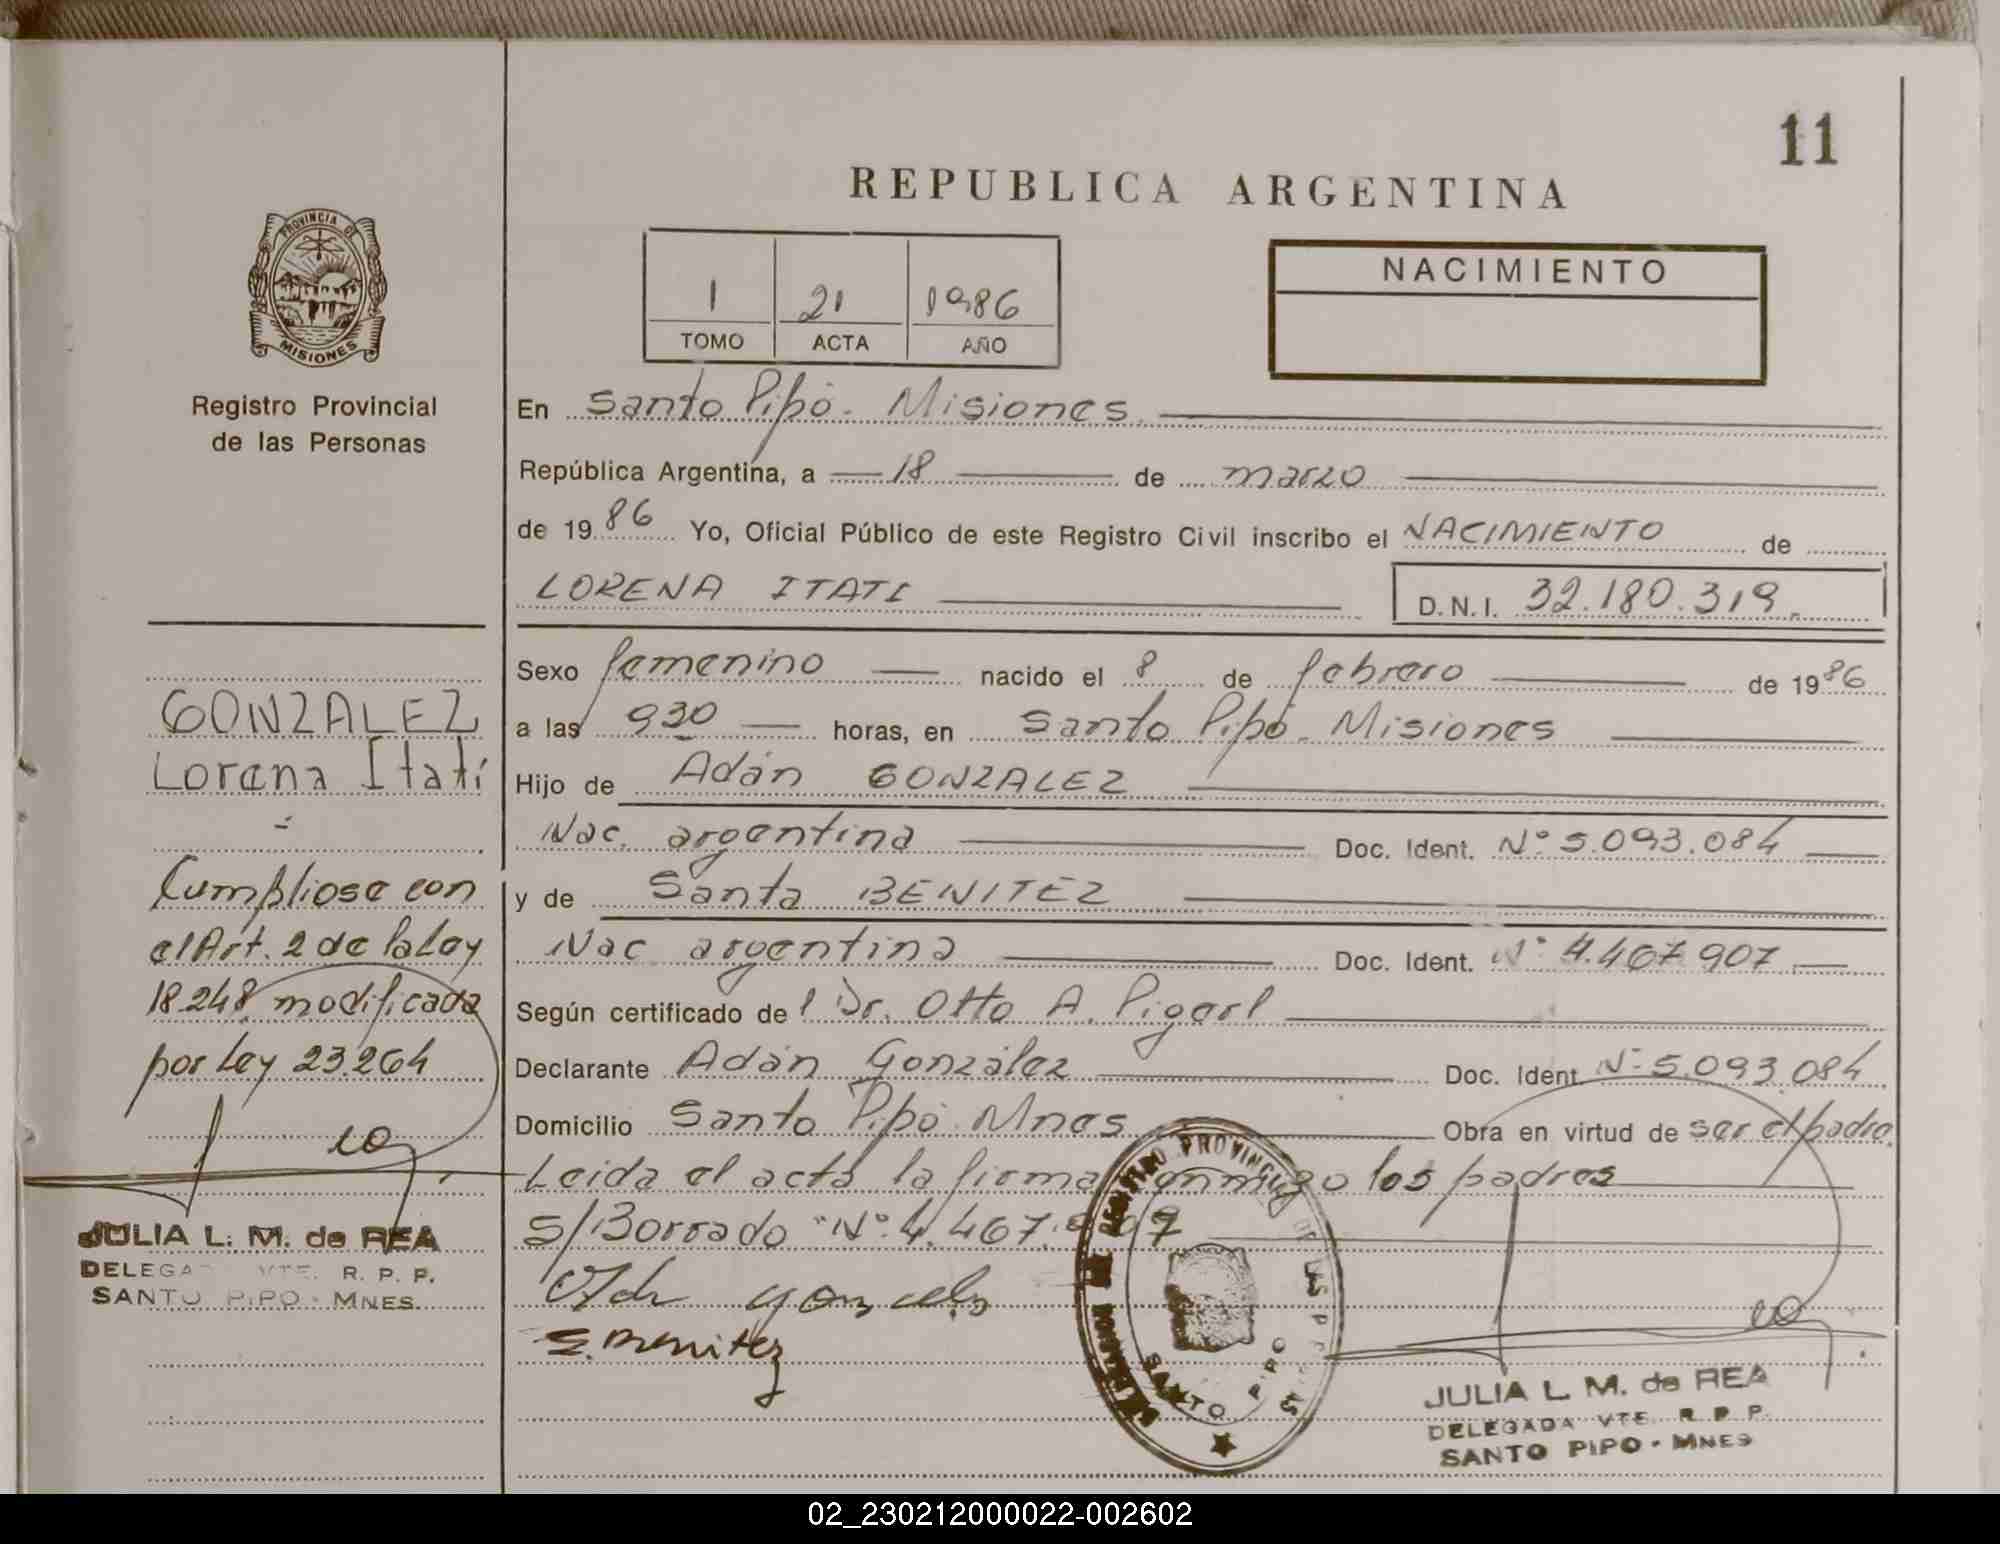 11
REPUBLICA ARGENTINA
PROVINCIA DE
MISIONES
Registro Provincial
de las Personas
1 21 1986
TOMO ACTA AÑO
NACIMIENTO
En Santo Pipó - Misiones.
República Argentina, a 18 de marzo
de 19 86 Yo, Oficial Público de este Registro Civil inscribo el NACIMIENTO de
LORENA ITATI D.N.I. 32.180.319.
Sexo femenino nacido el 8 de febrero de 19 86
a las 930 horas, en Santo Pipó - Misiones
Hijo de Adán GONZALEZ
Nac. argentina Doc. Ident. Nº 5.093.084
y de Santa BENITEZ
Nac argentina Doc. Ident. Nº 4.467.907
Según certificado de l Dr. Otto A.
Declarante Adán González Doc. Ident. Nº 5.093.084
Domicilio Santo Pipó - Mnes Obra en virtud de ser el padre.
Leida el acta la firman conmigo los padres
S/Borrado "Nº 4.467.907
S. Benitez
GONZALEZ
Lorena Itatí
Cumpliose con
el Art. 2 de la Ley
18.248 modificada
por Ley 23.264
JULIA L. M. de REA
DELEGADA VTE. R. P. P.
SANTO PIPO - MNES.
REGISTRO PROVINCIAL DE LAS PERSONAS
SANTO PIPO
JULIA L. M. de REA
DELEGADA VTE. R. P. P.
SANTO PIPO - MNES
02_230212000022-002602